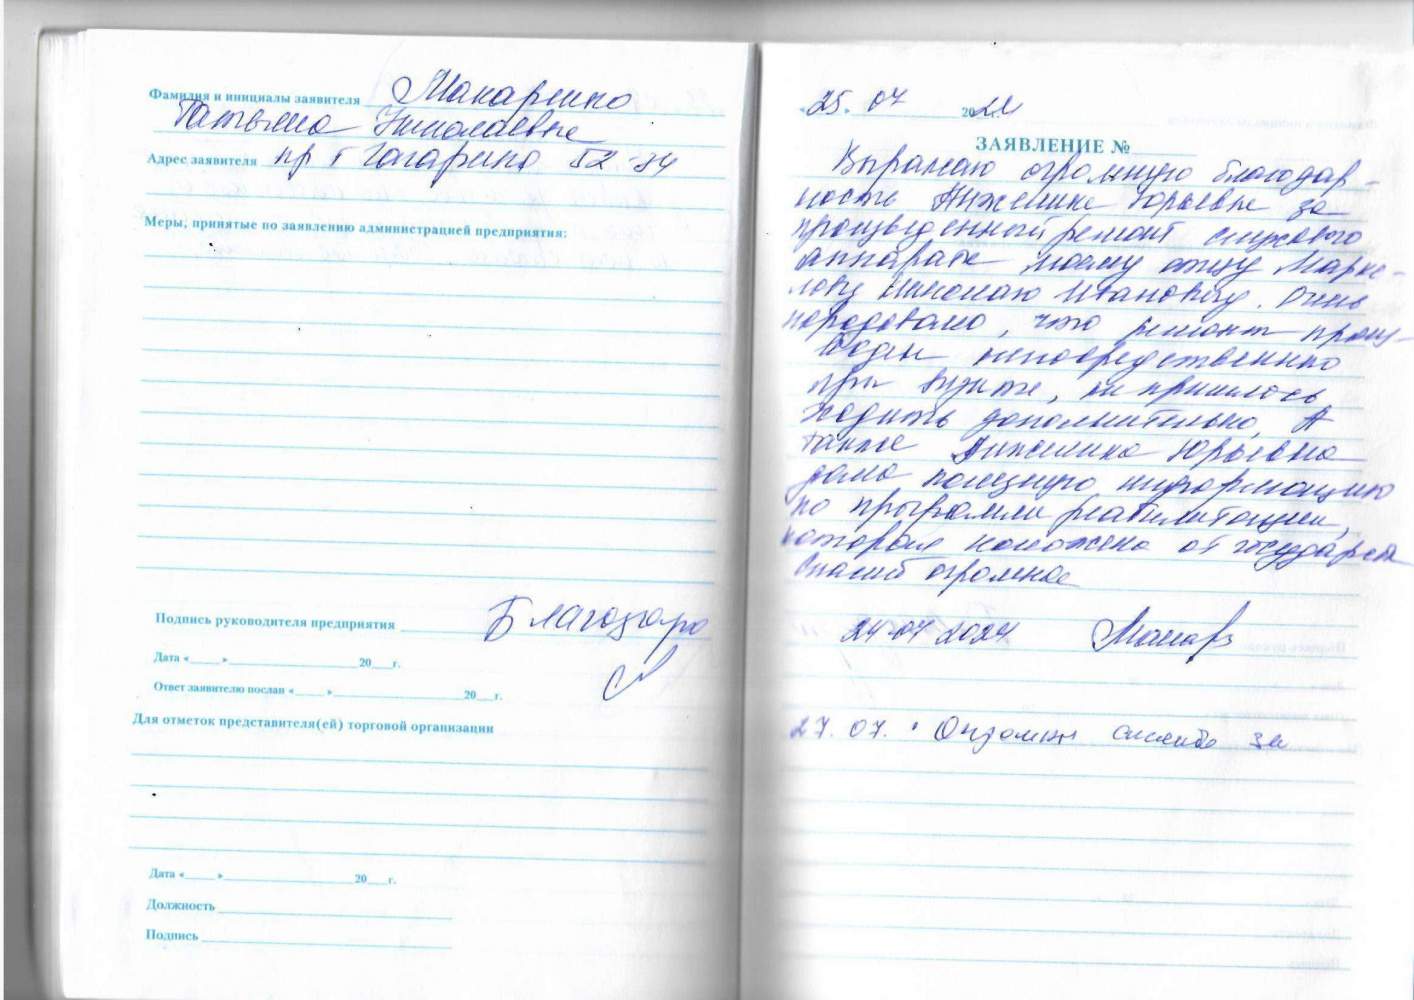 Фамилия и инициалы заявителя Макаренко
Татьяна Николаевна
Адрес заявителя пр т Гагарина 52-34
Меры, принятые по заявлению администрацией предприятия:
Подпись руководителя предприятия Благодарю
Дата «____» ____ 20__г.
Ответ заявителю послан «____» ____ 20__г.
Для отметок представителя(ей) торговой организации
Дата «____» ____ 20__г.
Должность
Подпись
25. 07 2024
ЗАЯВЛЕНИЕ №
Выражаю огромную благодар-
ность Анжелике Юрьевне за
произведенный ремонт слухового
аппарата моему отцу Марке-
лову Николаю Ивановичу. Очень
порадовало, что ремонт произ-
веден непосредственно
при визите, не пришлось
ходить дополнительно. А
также Анжелика Юрьевна
дала полезную информацию
по программе реабилитации,
которая положена от государства
Спасибо огромное
24.07.2024 Макар
27.07. Огромное спасибо за